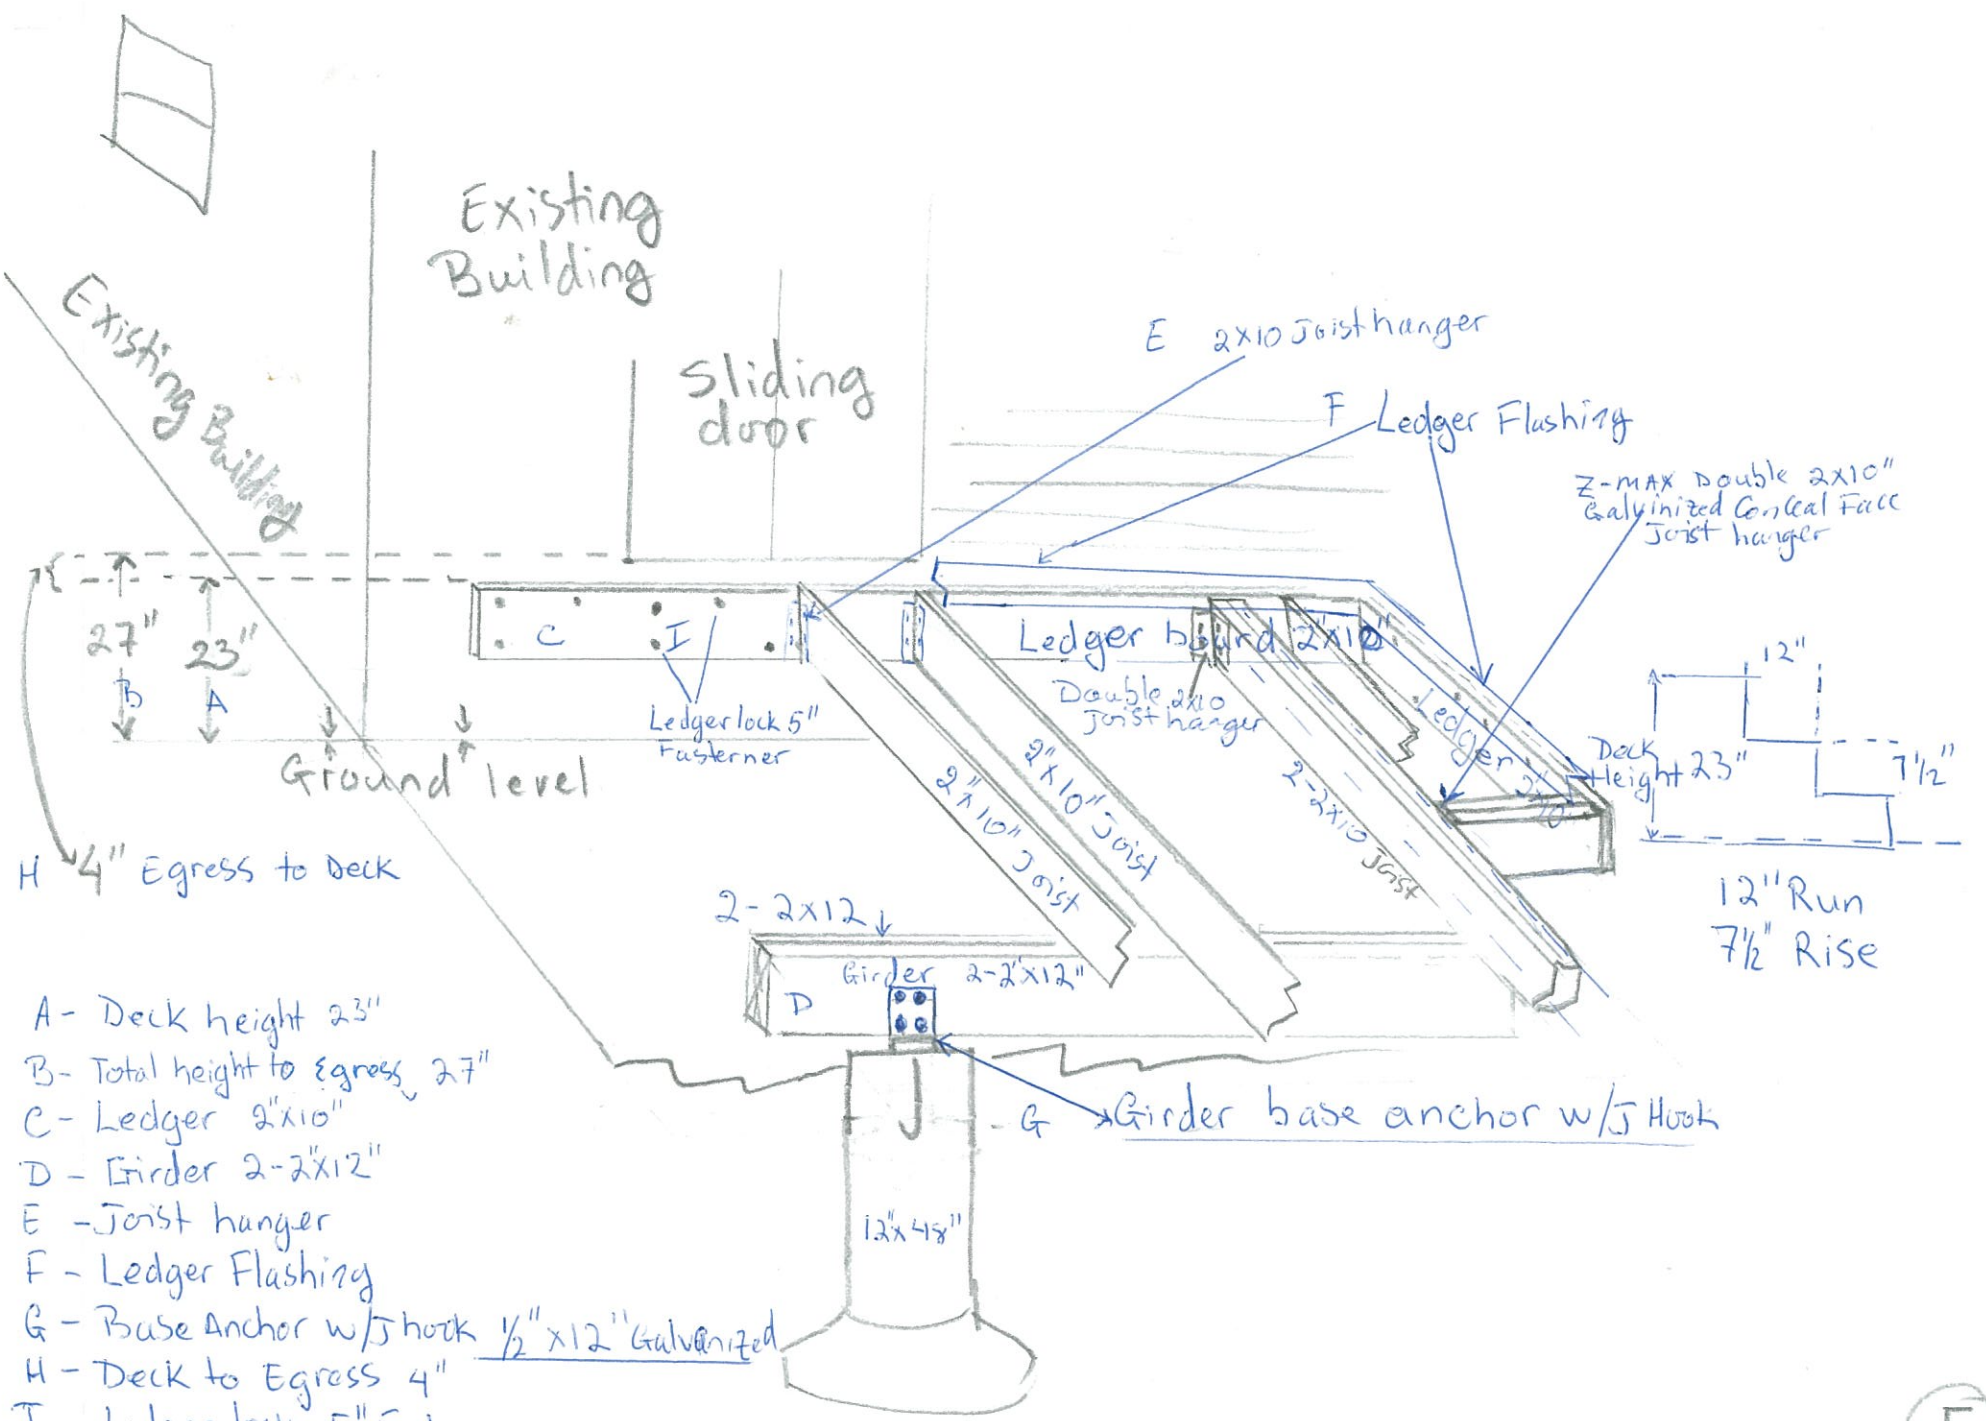 Existing
Building
Existing Building
Sliding
door
E 2x10 Joist hanger
F Ledger Flashing
Z-MAX Double 2x10"
Galvinized Conceal Face
Joist hanger
27"
B
23"
A
C
I
Ledger board 2"x10"
Ledgerlock 5"
Fasterner
Double 2x10
Joist hanger
Ledger 2"x10"
Ground level
2"x10" Joist
2"x10" Joist
2-2x10 Joist
12"
Deck
Height 23"
7 1/2"
12" Run
7 1/2" Rise
H 4" Egress to Deck
2-2x12
Girder 2-2"x12"
D
G Girder base anchor w/J Hook
12"x48"
A - Deck height 23"
B - Total height to Egress 27"
C - Ledger 2"x10"
D - Girder 2-2"x12"
E - Joist hanger
F - Ledger Flashing
G - Base Anchor w/J hook 1/2"x12" Galvanized
H - Deck to Egress 4"